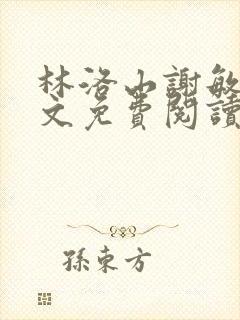 林洛山謝敏
文免費閱讀
孫東方